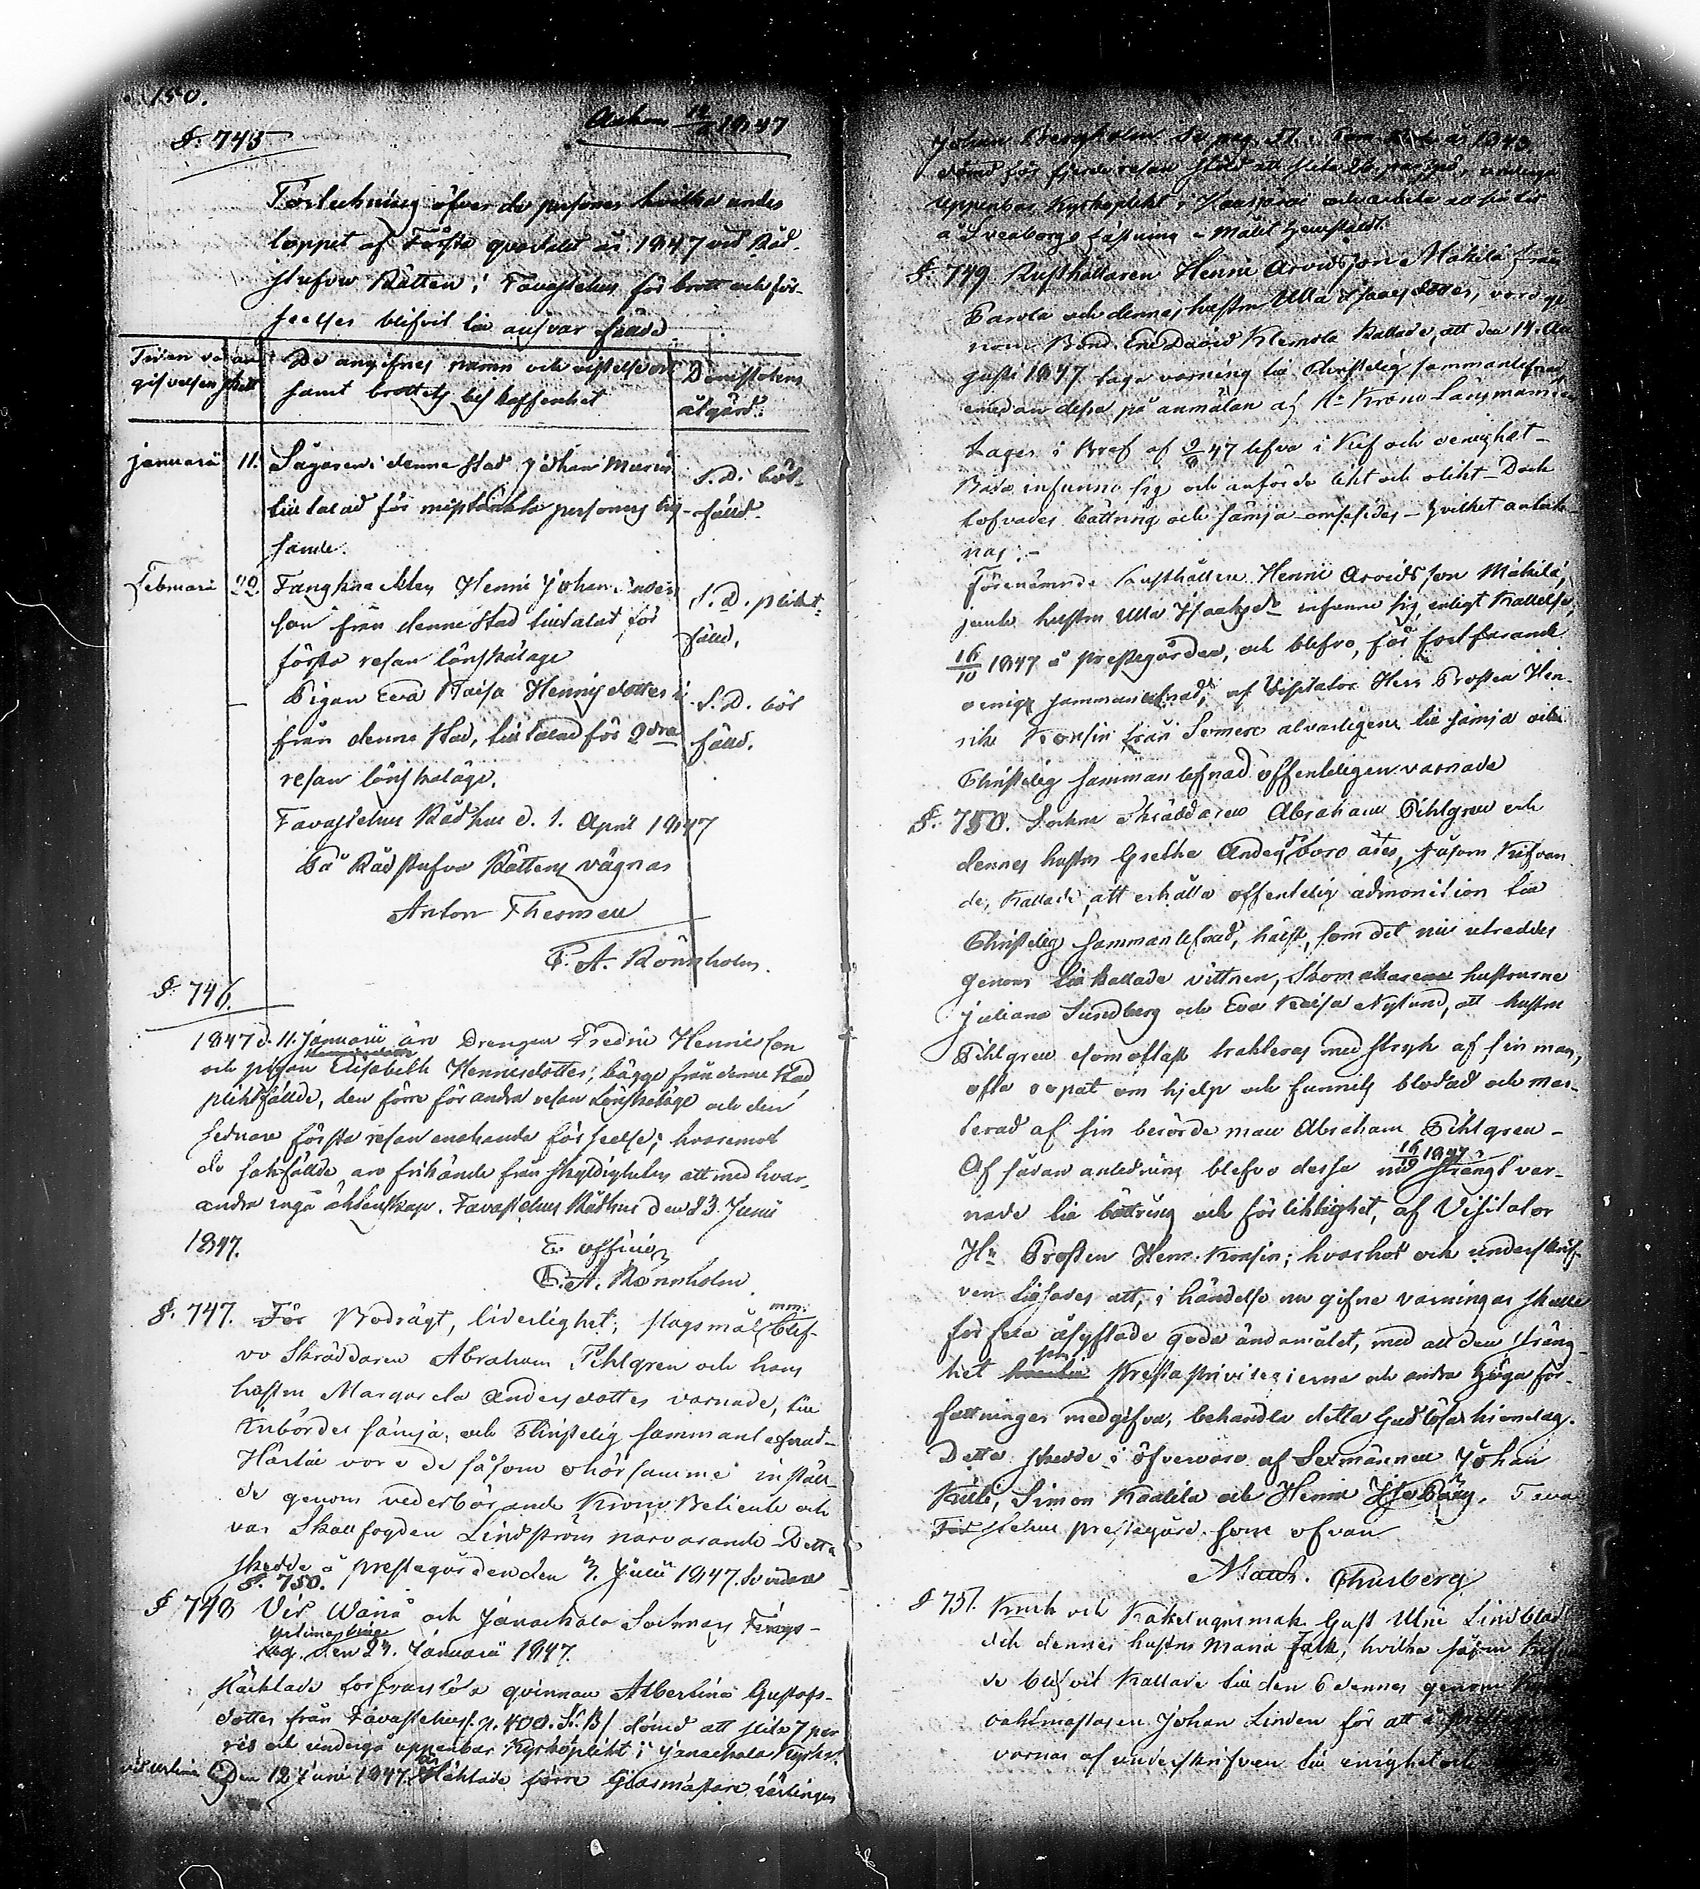 150.
§. 745
Ankom 12/4 1847
Förteckning öfver de personer hvilka under
loppet af Första qvartalet år 1847 vid Råd-
stufvu Rätten i Tavastehus för brott och för-
seelser blifvit till ansvar fällde
Tiden då an
gifvelsen skett
De angifnes namn och vistelseort
samt brottets beskaffenhet
Domstolens
åtgärd.
Januarii 11.
Sågaren i denna stad Johan
tilltalad för misstänkta personers hy-
sande.
S. D. böt-
fälld.
Februari 22.
Henric Johan Anders
son från denna stad tilltalad för
första resan lönskaläge
S. D. plikt-
fälld.
Pigan Eva Caisa Henricsdotter
från denna stad, tilltalad för 2dra
resan lönskaläge.
S. D. böt
fälld.
Tavastehus Rådhus d. 1. April 1847
På Rådstufvu Rättens vägnar
Anton Thermen
C. A. Rönnholm.
§. 746.
1847 d. 11. Januarii äro Drengen Fredric Henricsson
och pigan Elisabeth Henricsdotter, bägge från denna stad
pliktfällde, den förre för andra resan Lönskaläge och den
sednare första resan enahanda förseelse; hvaremot
de sakfällde äro frikände från skyldigheten att med hvar-
andra ingå äktenskap. Tavastehus Rådhus den 23. Junii
1847.
Ex officio
C. A. Rönnholm.
§. 747. För Bodrägt, liderlighet, slagsmål mm. blef-
vo Skräddaren Abraham Pihlgren och hans
hustru Margareta Andersdotter varnade, till
inbördes sämja, och Christelig sammanlefnad-
Härtill voro de såsom ohörsamme inställ-
de genom vederbörande Krono Betiente och
var Skallfogden Lindström närvarande. Detta
skedde å prestegården den 7. Julii 1847. Se vidare
§. 750.
§ 748 Vid Wånå och Janackala Socknars Tings-
lag den 27. Januarii 1847.
Häktade försvarslösa qvinnan Albertina Gustafs-
dotter från Tavastehus p. 400. dömd att slita 7 par
ris och undergå uppenbar Kyrkoplikt i Janackala Kyrka.
den 12 Juni 1847. Häktade förre Glasmästare Lärlingen
Johan Bergholm
dömd för fjerde resan stöld att slita 26 par spö, undergå
uppenbar Kyrkoplikt i och arbete sin lifs tid
å Sveaborgs fästning - Målet hemstäldt.
§. 749 Rusthållaren Henric Arvidsson Mäkilä från
Parola och dennes hustru Ulla Isaacsdotter, vordo ge
nom Bond. Eric David Klemola Kallade, att den 14. Au
gusti 1847 taga varning till Christelig sammanlefnad,
emedan dessa på anmälan af Hr Krono Länsmannen
i Bref af 9/8 47 lefva i Kif och oenighet-
Båda infunno sig och anförde likt och olikt - Dock
lofvades bättring och sämja ömsesides - hvilket anteck-
nas: -
Förenämnde Rusthållare Henric Arvidsson Mäkilä,
jemte hustru Ulla Isaacsdr infunno sig, enligt Kallelse,
16/10 1847 å prestegården, och blefvo, för fortfarande
oenig sammanlefnad, af Visitator Herr Prosten Hen-
ric Konsin från Somero alvarligen till sämja och
Christelig sammanlefnad offentligen varnade
§. 750. Sockne Skräddaren Abraham Pihlgren och
dennes hustru Gretha Andersdr voro åter, såsom Kifvan-
de, Kallade, att erhålla offentelig admonition till
Christelig sammanlefnad, hälst, som det nu utreddes
genom tillkallade vittnen, Skomakare hustrurne
Juliana Sundberg och Eva Kaisa Nylund, att hustru
Pihlgren esomoftast trakteras med stryk af sin man,
ofta ropat om hjelp och funnits blodad och mar-
terad af sin berörde man Abraham Pihlgren -
Af sådan anledning blefvo dessa nu 16/10 1847 strängt var-
nade till bättring och förliklighet, af Visitator
Hr Prosten Henr. Konsin; hvarhos och underskrif-
ven tillsades att, i händelse nu gifne varningar skulle
förfela åsyftade goda ändamålet, med all den sträng-
het som Prestaprivilegierne och andra höga för-
fattningar medgifva, behandla detta Gudlösa hionelag.
Detta skedde i öfvervaro af Sexmännen Johan
Kulli, Simon Kaakila och Henric. Tava
stehus prestegård som ofvan
Thusberg
§ 751. Krut och Kakelugnsmak. Gust. Ulric Lindblad
och dennes hustru Maria Falk, hvilka såsom
de blifvit Kallade till den 6 dennes genom
vaktmästaren Johan Linden för att
varnas af underskrifven till enighet och